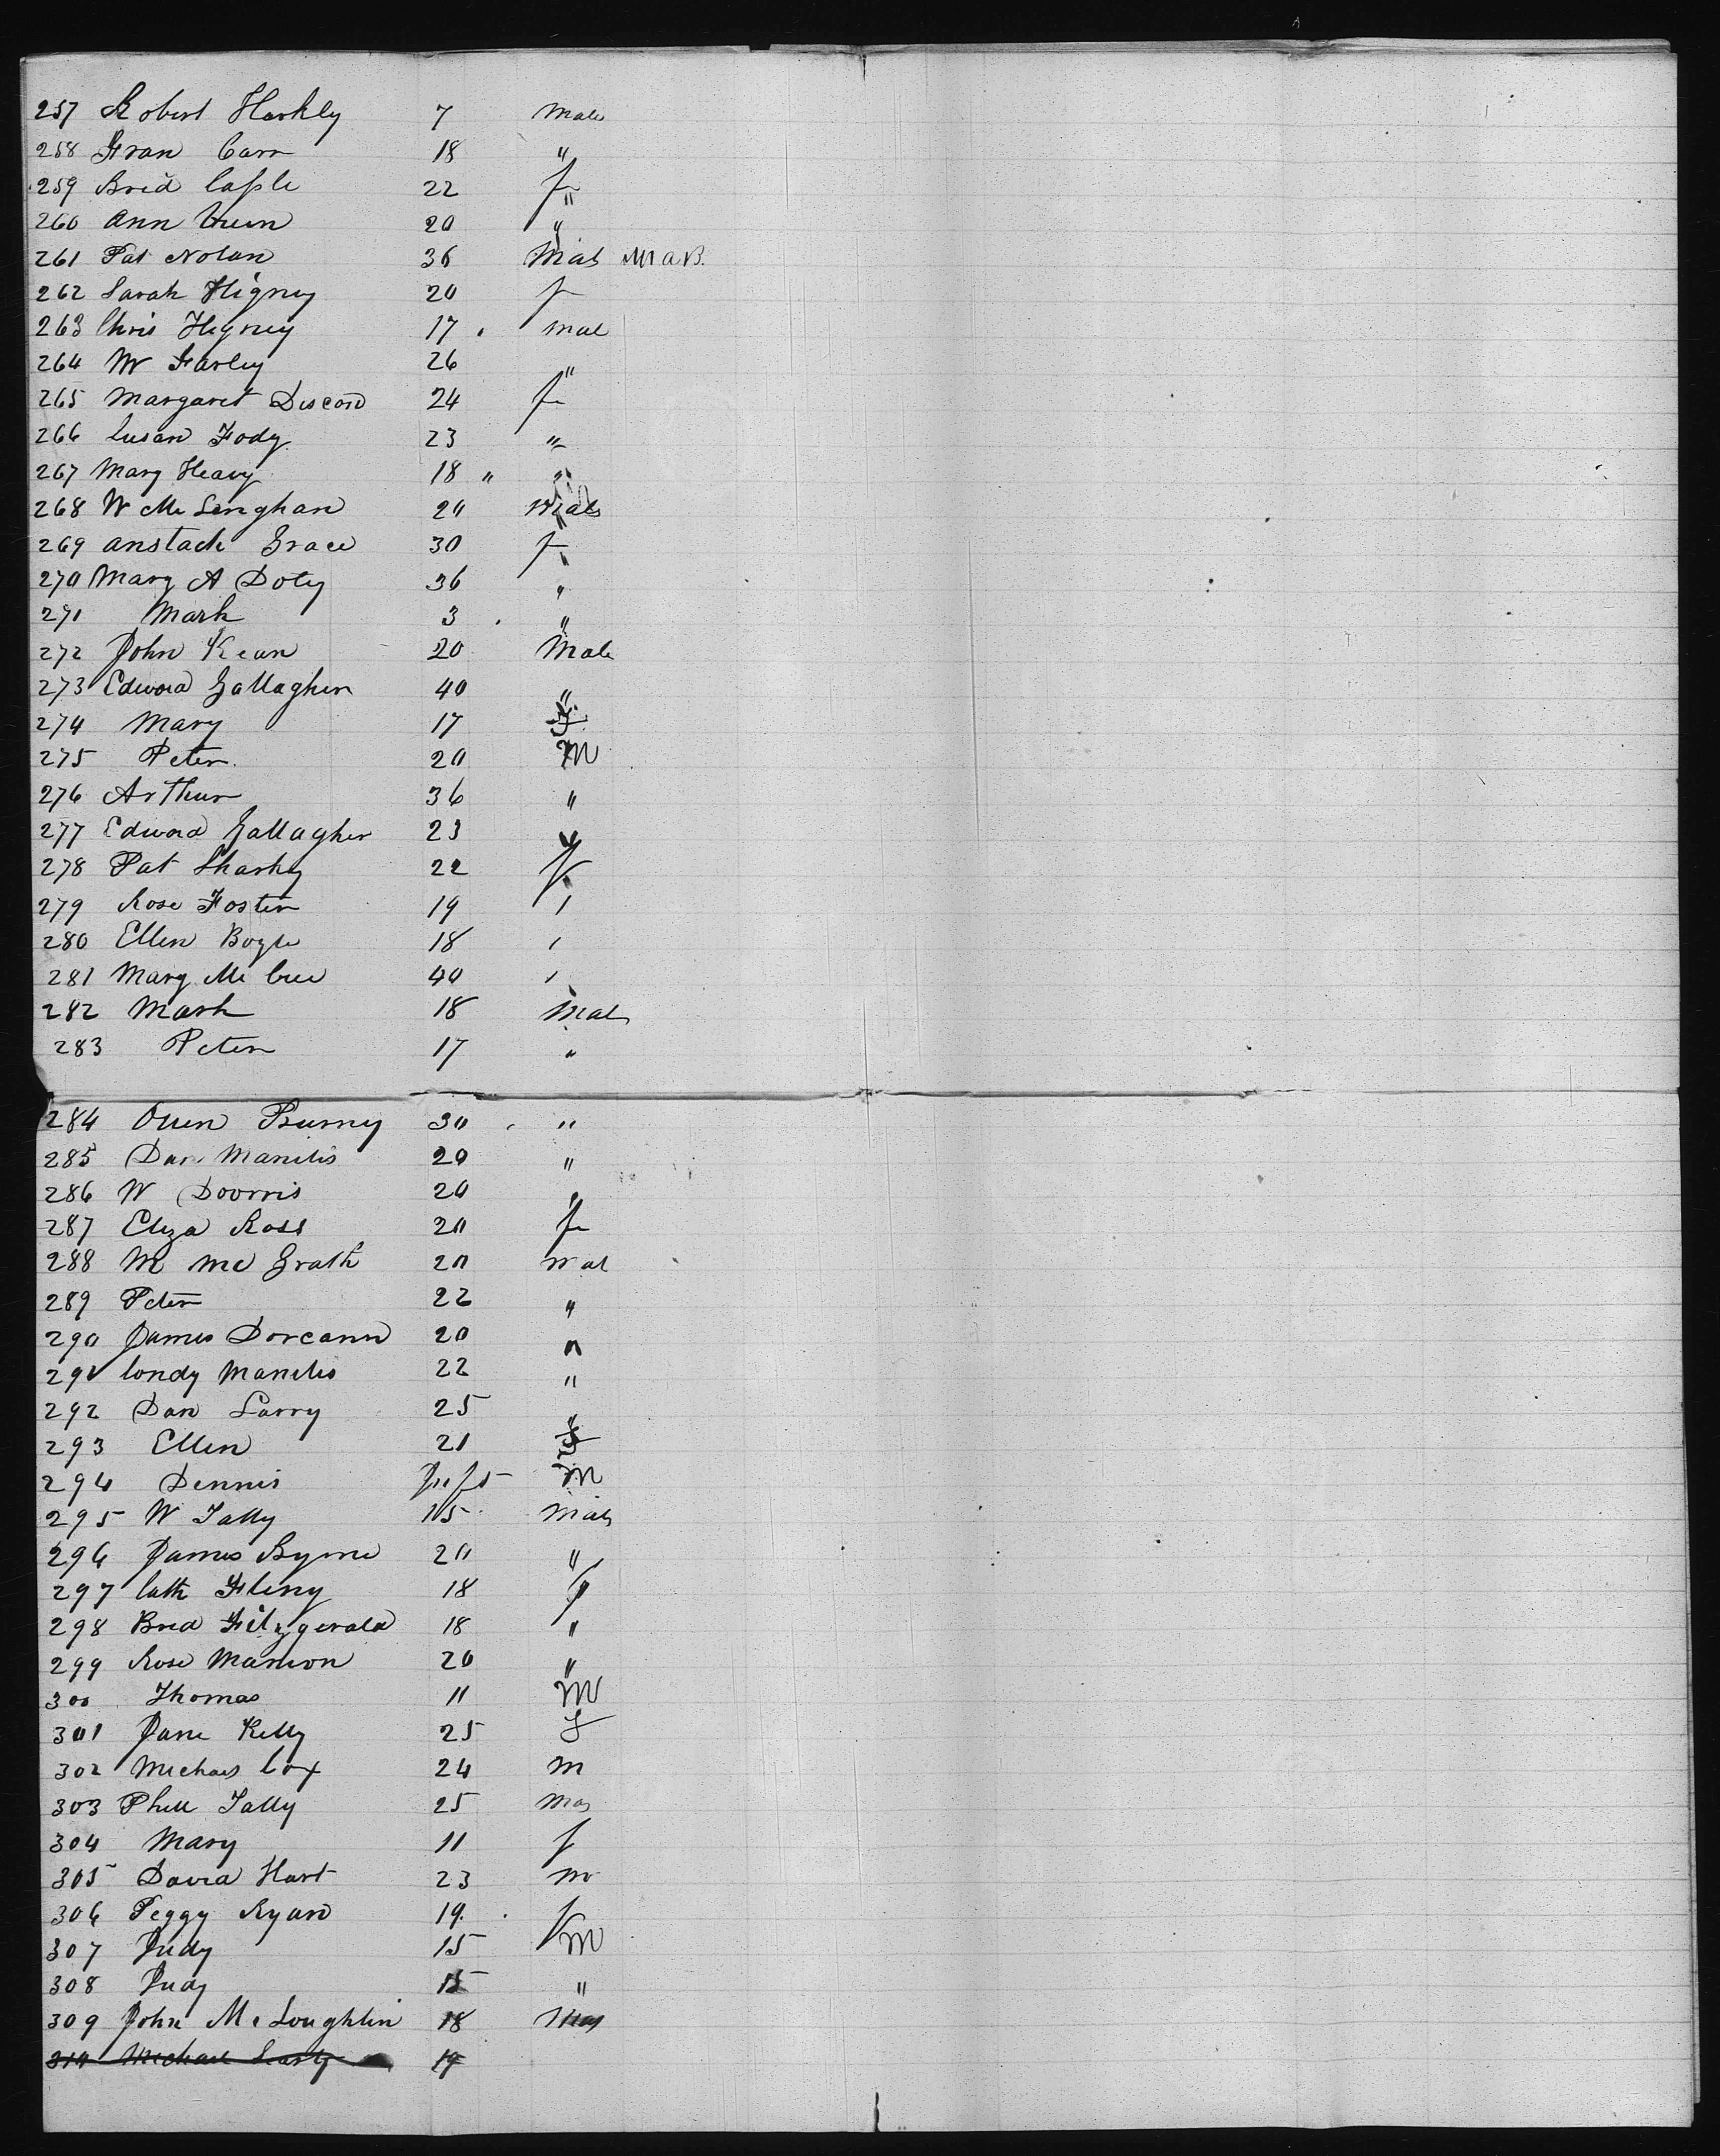 257 Robert Harkly 7 Male
258 Fran Carr 18 "
259 Brid Caſsle 22 f
260 Ann 20 "
261 Pat Nolan 36 Male
262 Sarah Higney 20 f
263 Chris Higney 17 . mal
264 W Farley 26 "
265 Margaret 24 fe
266 Susan Fody 23 "
267 Mary Heavy 18 " "
268 W Mc Lenghan 20 Male
269 anstach Grace 30 f
270 Mary A Doty 36 "
271 Mark 3 . "
272 John Kean 20 Male
273 Edward Gallagher 40 "
274 Mary 17 F
275 Peter 20 M
276 Arthur 36 "
277 Edward Gallagher 23
278 Pat Sharky 22 f
279 Rose Foster 19 "
280 Ellen Boyle 18 "
281 Mary Mc Cue 40 "
282 Mark 18 Male
283 Peter 17 "
284 Owen Burny 30 "
285 Dan Manilis 20 "
286 W Doorris 20 "
287 Eliza Ross 20 fe
288 M Mc Grath 20 Mal
289 Peter 22 "
290 James Dorcann 20 "
291 Condy Manilis 22 "
292 Dan Larry 25 "
293 Ellen 21 F
294 Dennis M
295 W Tally 15 Male
296 James Byrne 20 "
297 Cath 18 f
298 Brid Fitzgerald 18 "
299 Rose Marrion 20 "
300 Thomas 11 M
301 Jane Kelly 25 F
302 Michael Cox 24 M
303 Phill Tally 25 Ma
304 Mary 11 f
305 David Hart 23 m
306 Peggy Ryan 19 . f
307 Judy 15 M
308 Judy 15 "
309 John Mc Loughlin 18 Mal
310 Michael 19